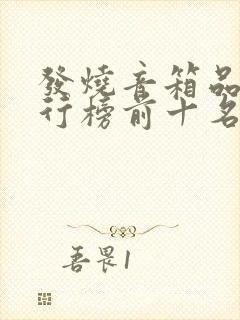 發燒音箱品
行榜前十名
吾畏1